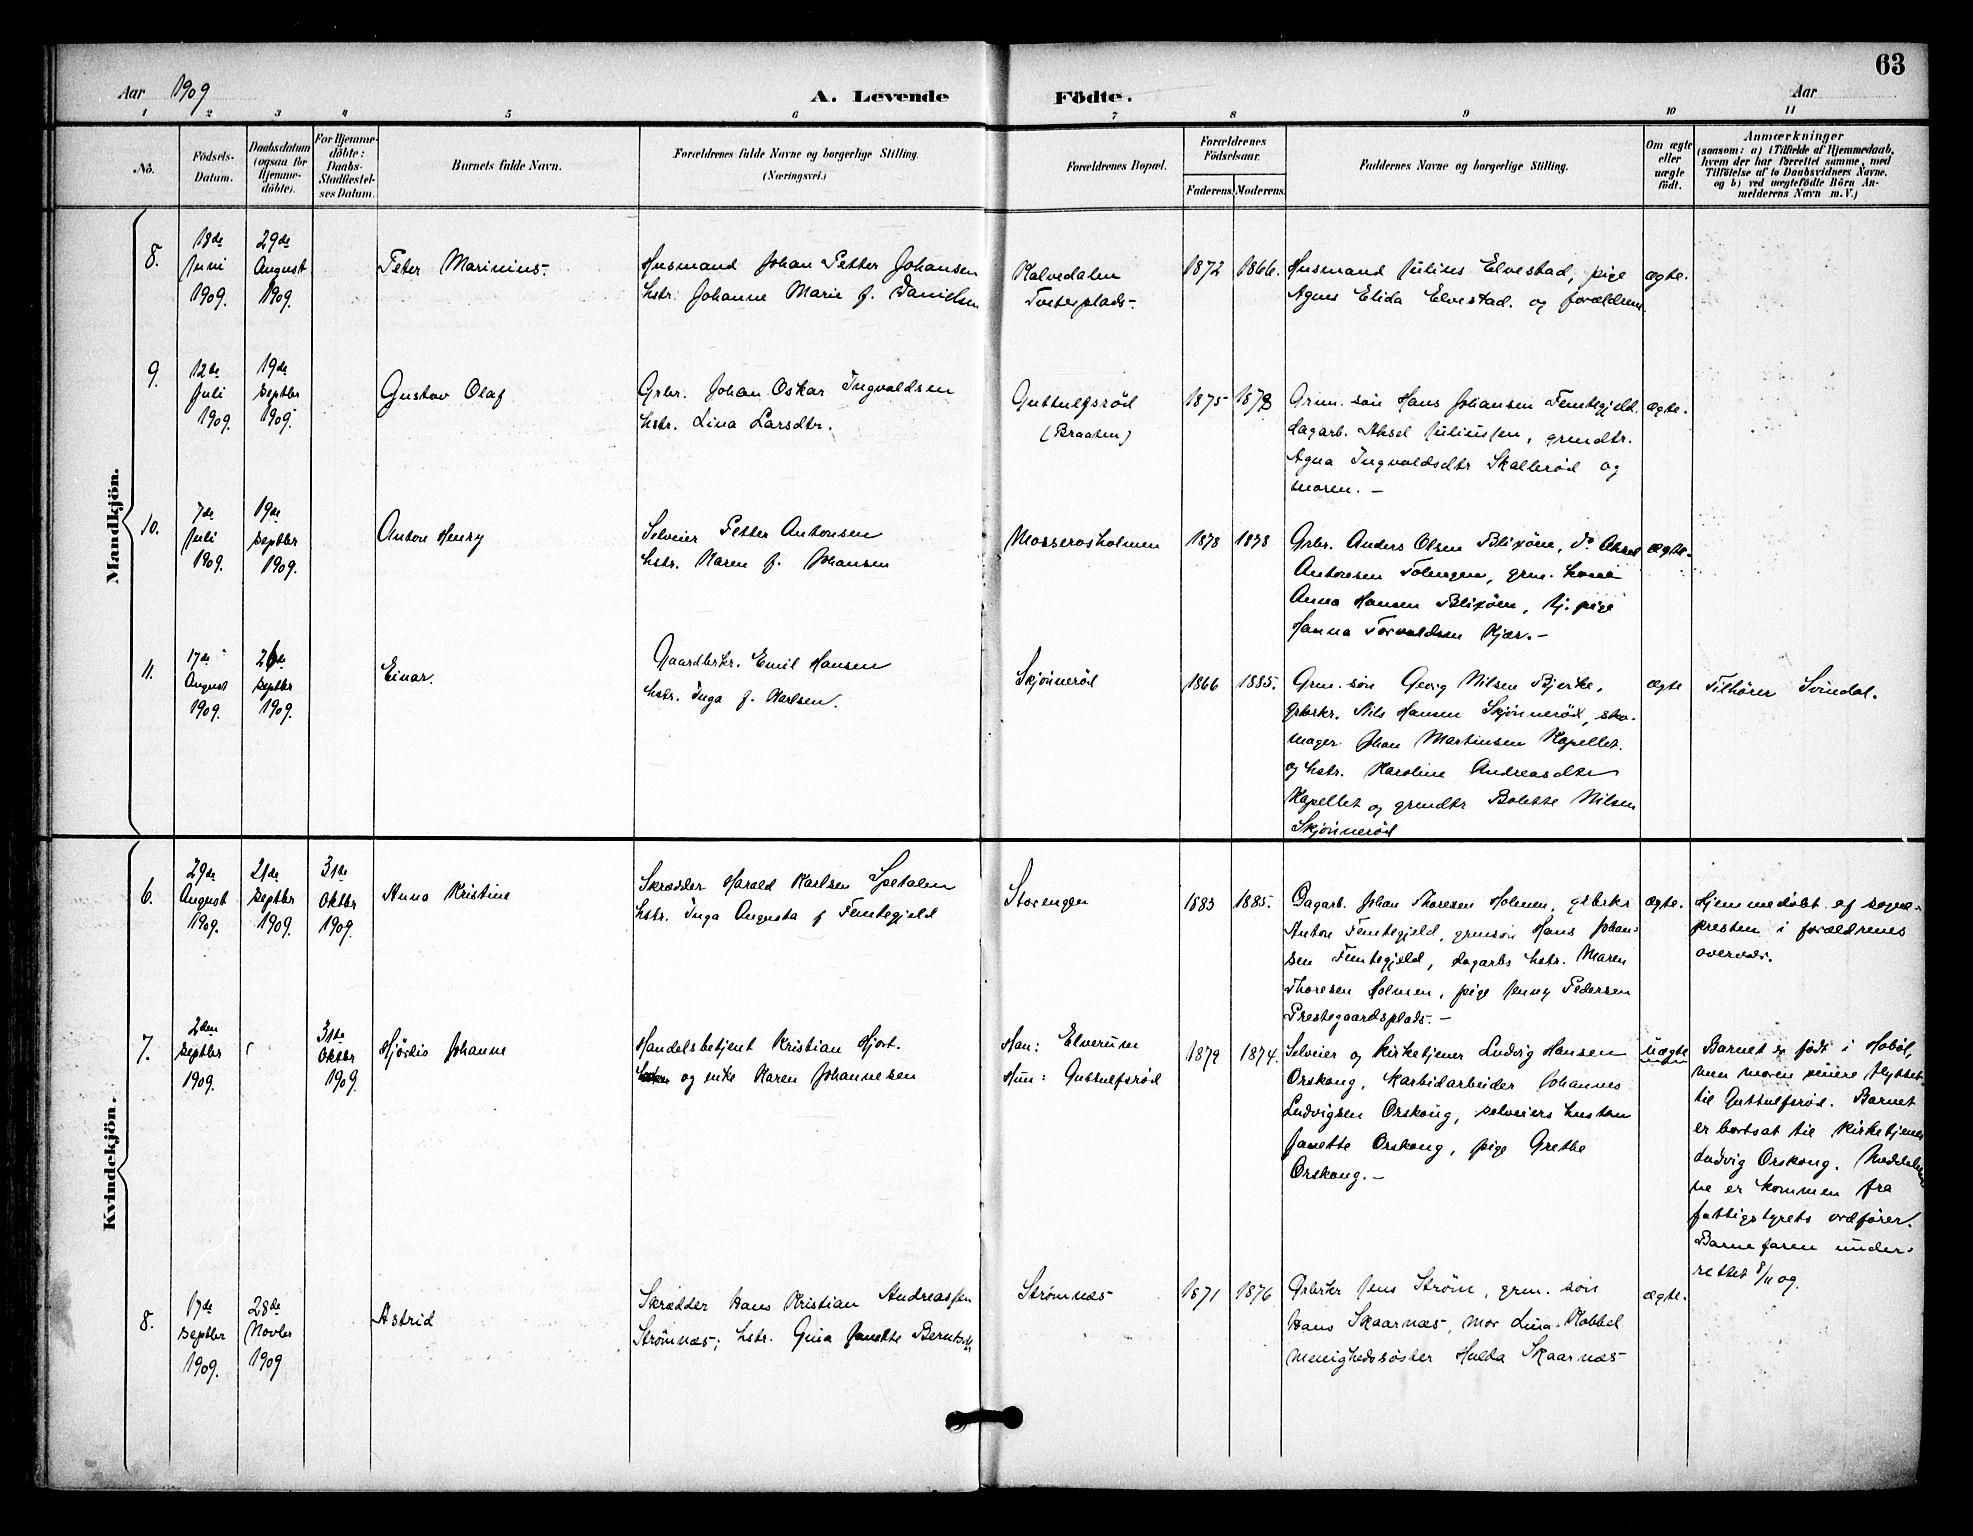 63
Aar 1909
A. Levende Födte.
Aar
1 2 3 4 5 6 7 8 9 10 11
No.
Födsels-
Datum.
Daabsdatum
(ogsaa for
Hjemme-
döbte).
For Hjemme-
döbte:
Daabs-
Stadfæstel-
ses Datum.
Barnets fulde Navn.
Forældrenes fulde Navne og borgerlige Stilling.
(Næringsvei.)
Forældrenes Bopæl.
Forældrenes
Födselsaar.
Faderens. Moderens.
Faddernes Navne og borgerlige Stilling.
Om ægte
eller
uægte
födt.
Anmærkninger
(saasom: a) i Tilfælde af Hjemmedaab,
hvem der har forrettet samme, med
Tilföielse af to Daabsvidners Navne,
og b) ved uægtefödte Börn An-
melderens Navn m. V.)
Mandkjön.
8.
18de
Juni
1909.
29de
August
1909.
Peter Marinius.
Husmand Johan Petter Johansen
hstr. Johanne Marie f. Danielsen
Kalvedalen
Tveterplads-
1872 1866.
Husmand Julius Elvestad, pige
Agnes Elida Elvestad. og forældrene.
ægte.
9.
12te
Juli
1909.
19de
septbr
1909.
Gustav Olaf
Grbr. Johan Oskar Ingvaldsen
hstr. Lina Larsdtr.
Guttulfsrød
(Braaten)
1875 1878
Grm. søn Hans Johansen Femtegjeld.
dagarb. Aksel Juliussen, grmdtr.
Agna Ingvaldsdtr Skallerød og
moren. -
ægte.
10.
7de
Juli
1909.
19de
septbr
1909.
Anton Henry
Selveier Petter Antonsen
hstr. Karen f. Johansen
Mosserosholmen
1878 1878
Grbr. Anders Olsen Blixöen, do Aksel
Antonsen Tolengen, grm. kone
Anna Hansen Blixöen, tj. pige
Hanna Torvaldsen Kjær.-
ægte.
11.
17de
August
1909.
26de
septbr
1909.
Einar.
Gaardbrkr. Emil Hansen
hstr. Inga f. Karlsen.
Skjönnerød
1866 1885.
Grm. søn Georg Nilsen Bjerke,
grbrkr. Nils Hansen Skjönnerød, sko-
mager Johan Martinsen Kapellet.
og hstr. Karoline Andreasdtr
Kapellet og grmdtr Bolette Nilsen
Skjönnerød
ægte
Tilhører Svindal.
Kvindekjön.
6.
29de
August
1909.
21de
septbr
1909.
31te
Oktbr
1909.
Anna Kristine
Skrædder Harald Karlsen Spetalen
hstr. Inga Augusta f Femtegjeld
Storengen
1883 1885.
Dagarb. Johan Thoresen Holmen, grbrkr
Anton Femtegjeld, grmsøn Hans Johan-
sen Femtegjeld, dagarbs hstr. Maren
Thoresen Holmen, pige Jenny Pedersen
Prestegaardsplads.-
ægte.
Hjemmedøbt af sogne-
presten i forældrenes
overvær.
7.
2den
septbr
1909.
31te
Oktbr
1909.
Hjördis Johanne
Handelsbetjent Kristian Hjort.
og enke Karen Johannesen
Han: Elverum
Hun: Guttulfsrød
1879 1874.
Selveier og kirketjener Ludvig Hansen
Orskoug, karbidarbeider Johannes
Ludvigsen Orskoug, selveiers hustru
Janette Orskoug, pige Grethe
Orskoug.-
uægte
Barnet er født i Hobøl,
men moren senere flyttet
til Guttulfsrød. Barnet
er bortsat til kirketjener
Ludvig Orskoug. Meddelelser-
ne er kommen fra
fattigstyrets ordfører.
Barnefaren under-
rettet 8/11 09.
8.
17de
septbr
1909.
28de
Novbr
1909
Astrid
Skrædder Hans Kristian Andreassen
Strömnæs; hstr. Gina Janette Berntsdtr
Strömnæs
1871 1876.
Grbrkr Jens Ström, grm. søn
Hans Skaarnæs, mor Lina Kobbel
menighedssøster Hulda Skaarnæs
ægte.